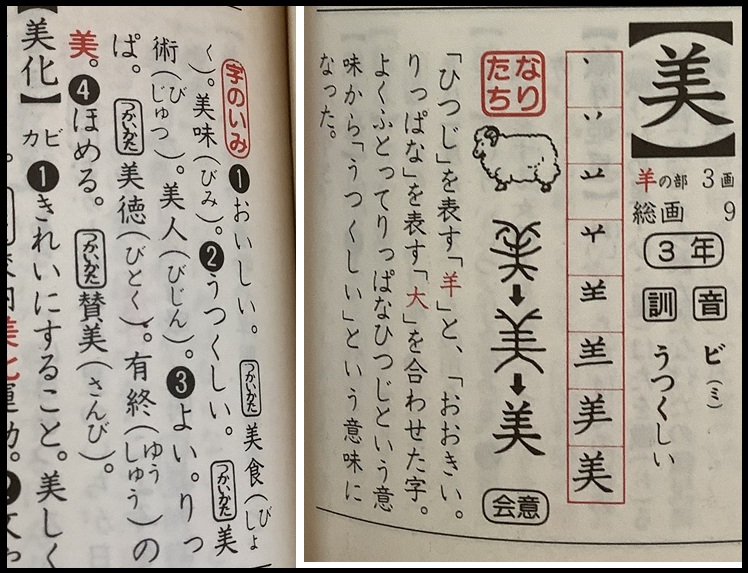 【美】
羊の部 3画
総画 9
3年
音 ビ(ミ)
訓 うつくしい
美
なりたち
美
会意
「ひつじ」を表す「羊」と、「おおきい。
りっぱな」を表す「大」を合わせた字。
よくふとってりっぱなひつじという意
味から「うつくしい」という意味に
なった。
字のいみ ❶おいしい。 つかいかた 美食(びしょ
く)。美味(びみ)。❷うつくしい。 つかいかた 美
術(びじゅつ)。美人(びじん)。❸よい。りっ
ぱ。 つかいかた 美徳(びとく)。有終(ゆうしゅう)の
美。❹ほめる。 つかいかた 賛美(さんび)。
【美化】カビ ❶きれいにすること。美しく